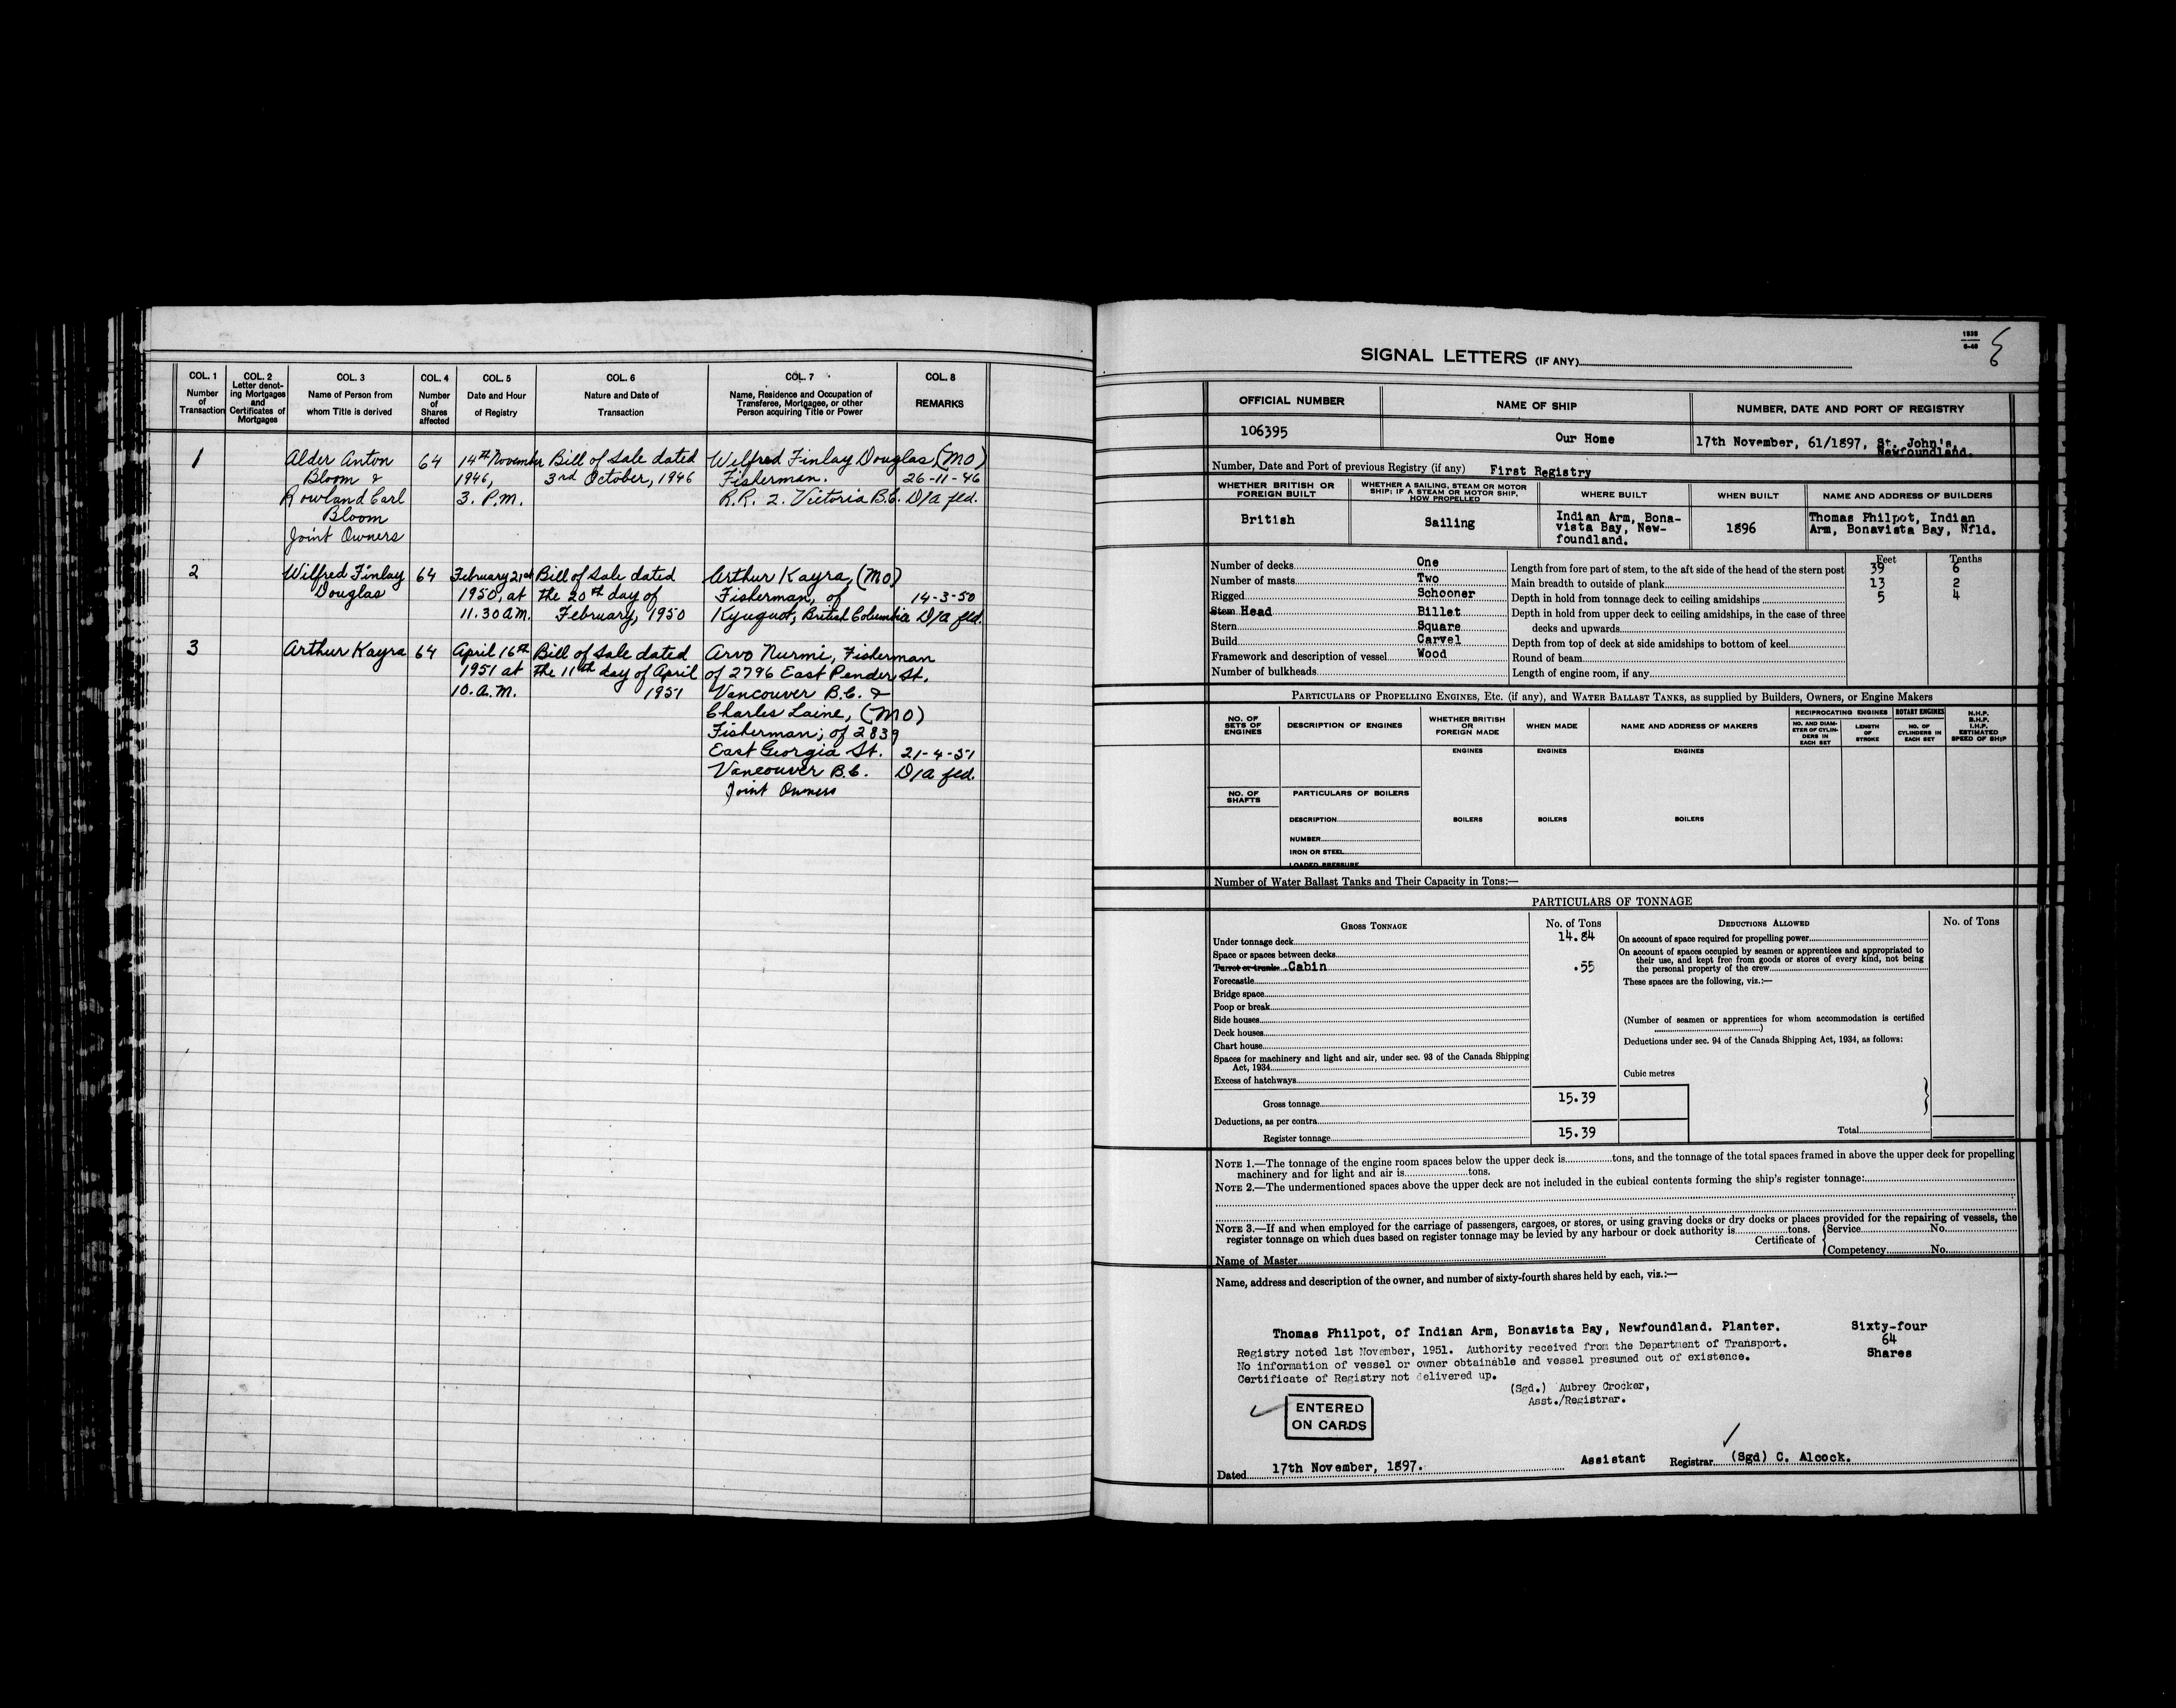 COL. 1
Number
of
Transaction
COL. 2
Letter denot-
ing Mortgages
and
Certificates of
Mortgages
COL. 3
Name of Person from
whom Title is derived
COL. 4
Number
of
Shares
affected
COL. 5
Date and Hour
of Registry
COL. 6
Nature and Date of
Transaction
COL. 7
Name, Residence and Occupation of
Transferee, Mortgagee, or other
Person acquiring Title or Power
COL. 8
REMARKS
1 Alder Anton 64 14th November Bill of Sale dated Wilfred Finlay Douglas (MO)
Bloom & 1946, 3rd October, 1946 Fisherman. 26-11-46
Rowland Carl 3. P.M. R.R. 2. Victoria B.C. D/a fed.
Bloom
Joint Owners
2 Wilfred Finlay 64 February 21st Bill of Sale dated Arthur Kayra, (MO)
Douglas 1950, at the 20th day of Fisherman, of 14-3-50
11.30 A.M. February, 1950 Kyuquot, British Columbia D/a fed.
3 Arthur Kayra 64 April 16th Bill of Sale dated Arvo Nurmi, Fisherman
1951 at the 11th day of April of 2796 East Pender St.
10. A.M. 1951 Vancouver B.C. &
Charles Laine, (MO)
Fisherman; of 2839
East Georgia St. 21-4-51
Vancouver B.C. D/a fed.
Joint Owners
SIGNAL LETTERS (IF ANY)
OFFICIAL NUMBER
NAME OF SHIP
NUMBER, DATE AND PORT OF REGISTRY
106395
Our Home
17th November, 61/1897, St. John's,
Newfoundland.
Number, Date and Port of previous Registry (if any) First Registry
WHETHER BRITISH OR
FOREIGN BUILT
WHETHER A SAILING, STEAM OR MOTOR
SHIP; IF A STEAM OR MOTOR SHIP,
HOW PROPELLED
WHERE BUILT
WHEN BUILT
NAME AND ADDRESS OF BUILDERS
British
Sailing
Indian Arm, Bona-
vista Bay, New-
foundland.
1896
Thomas Philpot, Indian
Arm, Bonavista Bay, Nfld.
Number of decks One
Number of masts Two
Rigged Schooner
Stem Head Billet
Stern Square
Build Carvel
Framework and description of vessel Wood
Number of bulkheads
Feet Tenths
Length from fore part of stem, to the aft side of the head of the stern post 39 6
Main breadth to outside of plank 13 2
Depth in hold from tonnage deck to ceiling amidships 5 4
Depth in hold from upper deck to ceiling amidships, in the case of three
decks and upwards
Depth from top of deck at side amidships to bottom of keel
Round of beam
Length of engine room, if any
PARTICULARS OF PROPELLING ENGINES, ETC. (if any), and WATER BALLAST TANKS, as supplied by Builders, Owners, or Engine Makers
NO. OF
SETS OF
ENGINES
DESCRIPTION OF ENGINES
WHETHER BRITISH
OR
FOREIGN MADE
WHEN MADE
NAME AND ADDRESS OF MAKERS
RECIPROCATING ENGINES
NO. AND DIAM-
ETER OF CYLIN-
DERS IN
EACH SET
LENGTH
OF
STROKE
ROTARY ENGINES
NO. OF
CYLINDERS IN
EACH SET
N.H.P.
B.H.P.
I.H.P.
ESTIMATED
SPEED OF SHIP
ENGINES ENGINES ENGINES
NO. OF
SHAFTS
PARTICULARS OF BOILERS
DESCRIPTION BOILERS BOILERS BOILERS
NUMBER
IRON OR STEEL
LOADED PRESSURE
Number of Water Ballast Tanks and Their Capacity in Tons:—
PARTICULARS OF TONNAGE
GROSS TONNAGE No. of Tons
Under tonnage deck 14.84
Space or spaces between decks
Turret or trunk Cabin .55
Forecastle
Bridge space
Poop or break
Side houses
Deck houses
Chart house
Spaces for machinery and light and air, under sec. 93 of the Canada Shipping
Act, 1934
Excess of hatchways
Gross tonnage 15.39
Deductions, as per contra
Register tonnage 15.39
DEDUCTIONS ALLOWED No. of Tons
On account of space required for propelling power
On account of spaces occupied by seamen or apprentices and appropriated to
their use, and kept free from goods or stores of every kind, not being
the personal property of the crew
These spaces are the following, viz.:—
(Number of seamen or apprentices for whom accommodation is certified
)
Deductions under sec. 94 of the Canada Shipping Act, 1934, as follows:
Cubic metres
Total
NOTE 1.—The tonnage of the engine room spaces below the upper deck is tons, and the tonnage of the total spaces framed in above the upper deck for propelling
machinery and for light and air is tons.
NOTE 2.—The undermentioned spaces above the upper deck are not included in the cubical contents forming the ship's register tonnage:
NOTE 3.—If and when employed for the carriage of passengers, cargoes, or stores, or using graving docks or dry docks or places provided for the repairing of vessels, the
register tonnage on which dues based on register tonnage may be levied by any harbour or dock authority is tons.
Certificate of
Service No.
Competency No.
Name of Master
Name, address and description of the owner, and number of sixty-fourth shares held by each, viz.:—
Thomas Philpot, of Indian Arm, Bonavista Bay, Newfoundland. Planter. Sixty-four
64
Shares
Registry noted 1st November, 1951. Authority received from the Department of Transport.
No information of vessel or owner obtainable and vessel presumed out of existence.
Certificate of Registry not delivered up.
(Sgd.) Aubrey Crocker,
Asst./Registrar.
ENTERED
ON CARDS
Dated 17th November, 1897. Assistant Registrar (Sgd) C. Alcock.